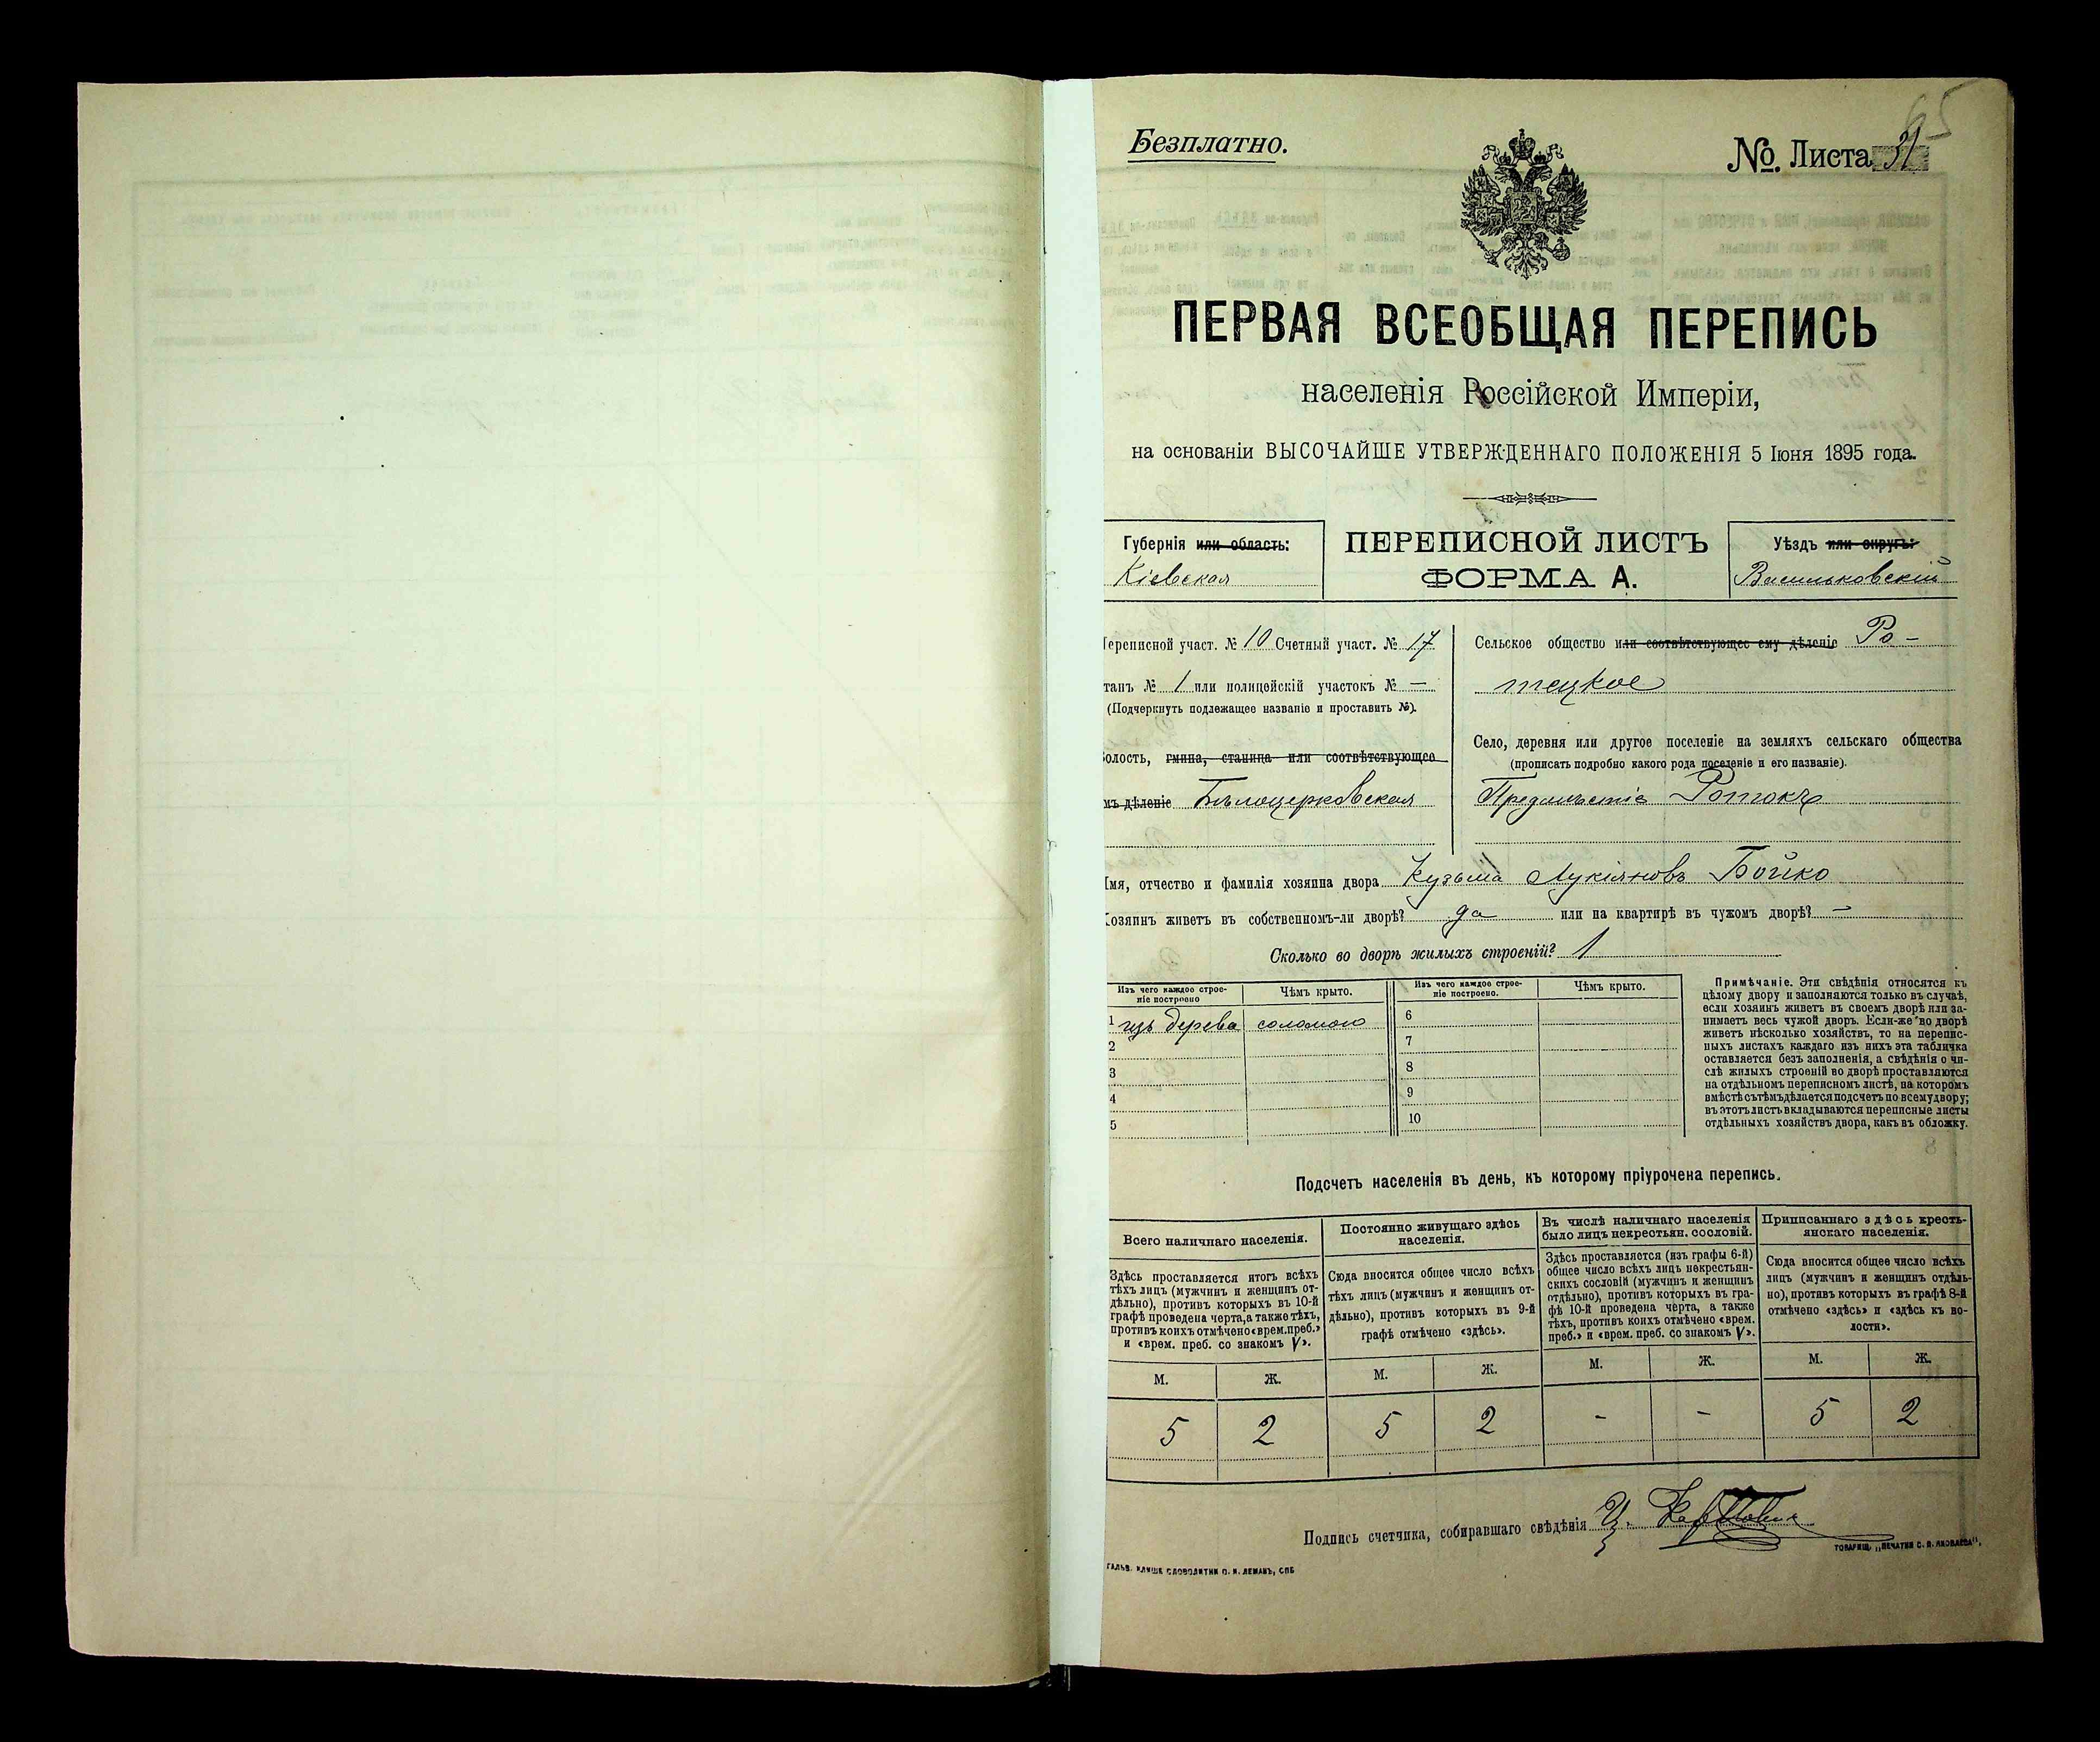 65
Безплатно.
№. Листа 31
ПЕРВАЯ ВСЕОБЩАЯ ПЕРЕПИСЬ
населенія Россійской Имперіи,
на основаніи ВЫСОЧАЙШЕ УТВЕРЖДЕННАГО ПОЛОЖЕНІЯ 5 Іюня 1895 года.
Губернія или область:
Кіевская
ПЕРЕПИСНОЙ ЛИСТЪ
ФОРМА А.
Уѣздъ или округъ:
Васильковскій
Переписной участ. № 10 Счетный участ. № 17
танъ № 1 или полицейскій участокъ № —
(Подчеркнуть подлежащее названіе и проставить №).
олость, гмина, станица или соотвѣтствующее
мъ дѣленіе Бѣлоцерковская
Сельское общество или соотвѣтствующее ему дѣленіе Ро-
тецкое
Село, деревня или другое поселеніе на земляхъ сельскаго общества
(прописать подробно какого рода поселеніе и его названіе).
Предмѣстіе Ротокъ
Имя, отчество и фамилія хозяина двора Кузьма Лукіяновъ Бойко
Хозяинъ живетъ въ собственномъ-ли дворѣ? да или на квартирѣ въ чужомъ дворѣ? —
Сколько во дворѣ жилыхъ строеній? 1
Изъ чего каждое строе-
ніе построено
Чѣмъ крыто.
Изъ чего каждое строе-
ніе построено.
Чѣмъ крыто.
1 изъ дерева соломою
2
3
4
5
6
7
8
9
10
Примѣчаніе. Эти свѣдѣнія относятся къ
цѣлому двору и заполняются только въ случаѣ,
если хозяинъ живетъ въ своемъ дворѣ или за-
нимаетъ весь чужой дворъ. Если-же во дворѣ
живетъ нѣсколько хозяйствъ, то на перепис-
ныхъ листахъ каждаго изъ нихъ эта табличка
оставляется безъ заполненія, а свѣдѣнія о чи-
слѣ жилыхъ строеній во дворѣ проставляются
на отдѣльномъ переписномъ листѣ, на которомъ
вмѣстѣ съ тѣмъ дѣлается подсчетъ по всему двору;
въ этотъ листъ вкладываются переписные листы
отдѣльныхъ хозяйствъ двора, какъ въ обложку.
Подсчетъ населенія въ день, къ которому пріурочена перепись.
Всего наличнаго населенія.
Здѣсь проставляется итогъ всѣхъ
тѣхъ лицъ (мужчинъ и женщинъ от-
дѣльно), противъ которыхъ въ 10-й
графѣ проведена черта, а также тѣхъ,
противъ коихъ отмѣчено «врем. преб.»
и «врем. преб. со знакомъ V».
Постоянно живущаго здѣсь
населенія.
Сюда вносится общее число всѣхъ
тѣхъ лицъ (мужчинъ и женщинъ от-
дѣльно), противъ которыхъ въ 9-й
графѣ отмѣчено «здѣсь».
Въ числѣ наличнаго населенія
было лицъ некрестьян. сословій.
Здѣсь проставляется (изъ графы 6-й)
общее число всѣхъ лицъ некрестьян-
скихъ сословій (мужчинъ и женщинъ
отдѣльно), противъ которыхъ въ гра-
фѣ 10-й проведена черта, а также
тѣхъ, противъ коихъ отмѣчено «врем.
преб.» и «врем. преб. со знакомъ V».
Приписаннаго здѣсь кресть-
янскаго населенія.
Сюда вносится общее число всѣхъ
лицъ (мужчинъ и женщинъ отдѣль-
но), противъ которыхъ въ графѣ 8-й
отмѣчено «здѣсь» и «здѣсь къ во-
лости».
М. Ж. М. Ж. М. Ж. М. Ж.
5 2 5 2 - - 5 2
Подпись счетчика, собиравшаго свѣдѣнія
ГАЛЬВ. КЛИШЕ СЛОВОЛИТНИ О. И. ЛЕМАНЪ, СПБ
ТОВАРИЩ. „ПЕЧАТНИ С. П. ЯКОВЛЕВА",